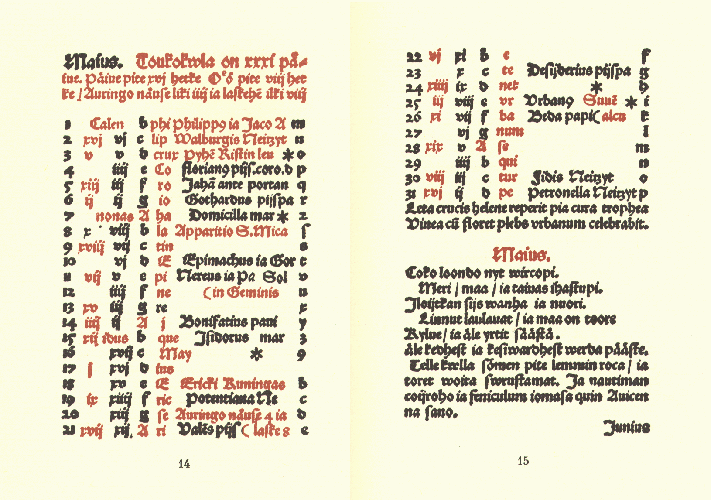 Maius. Toukokwla on xxxi pä-
iue. Päiue pite xvj hetke Ö pite viij het
ke / Auringo nduse liki iiij ia laskehē ilki viij
1 Calen b phi Philipp9 ia Jaco A m
2 xvj vj c lip Walburgis Neitzyt n
3 v v d crux Pyhē Ristin leu * o
4 iiij e Co florian9 pijs.coro.d p
5 xiij iij f ro Jahā ante portan q
6 ij ij g io Gothardus pijspa r
7 nonas A ha Domicilla mar * 2
8 x viij b la Apparitio S.Mica s
9 xviij vij c tin s
10 vj d Œ Epimachus ia Gor t
11 vij v e pi Nereus ia Pa Sol v
12 iiij f ne (in Geminis u
13 xv iij g re x
14 iiij ij A j Bonifatius pani y
15 xij idus b que Isidorus mar 3
16 xvij c May * 9
17 j xvj d ius
18 xv e Œ Ericki Kuningas b
19 ix xiiij f ric Potentiana Ne c
20 xiij g se Auringo näuse 4 ia d
21 xvij xij A ri Valēs pijs ( laske 8 e
14
22 vj xi b e f
23 x c te Desijderius pijspa g
24 xiiij ix d net * h
25 iij viij e vr Vrban9 Suuē * i
26 xi vij f ba Beda papi ( alcu k
27 vj g num l
28 xix v A se m
29 iiij b qui n
30 viij iij c tur Fidis Neitzyt o
31 xvj ij d pe Petronella Neitzyt p
Leta crucis helene reperit pia cura trophea
Vinea cū floret plebs vrbanum celebrabit.
Maius.
Coko loondo nyt wircopi.
Meri / maa / ia taiuas ihastupi.
Iloijtkan sijs wanha ia nuori.
Linnut laulauat / ia maa on toore
Kylue / ia äle yrtit säästä.
äle kedhest ia kesiwardhest werba pääste.
Telle kwlla sömen pite lemmin roca / ia
toret woita sworustamat. Ja nautiman
coijroho ia feniculum iomasa quin Auicen
na sano.
Junius
15